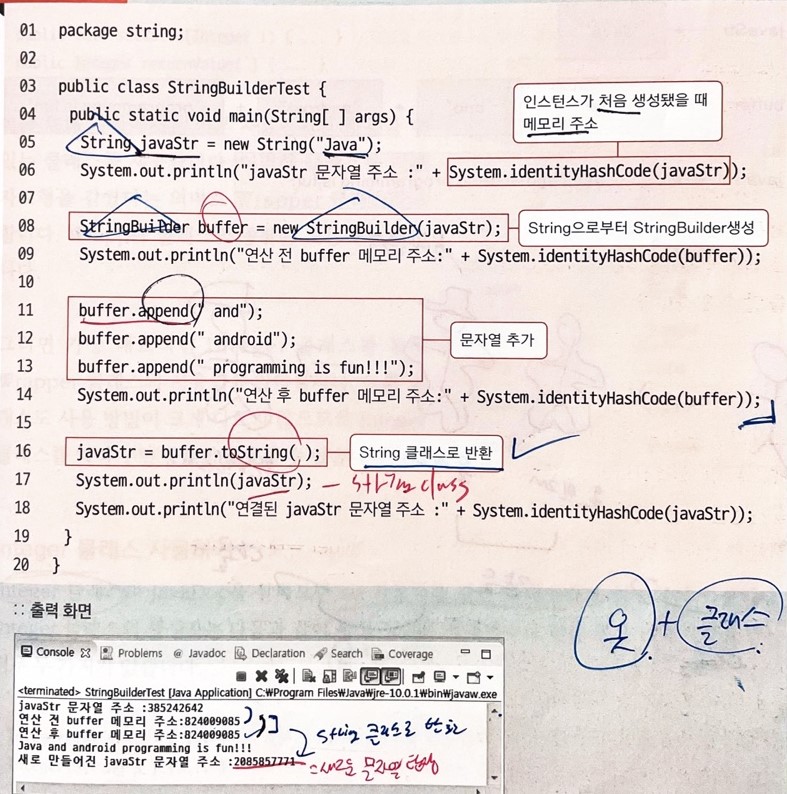 01 package string;
02
03 public class StringBuilderTest {
04 public static void main(String[ ] args) {
인스턴스가 처음 생성됐을 때
메모리 주소
05 String javaStr = new String("Java");
06 System.out.println("javaStr 문자열 주소 :" + System.identityHashCode(javaStr));
07
08 StringBuilder buffer = new StringBuilder(javaStr);
String으로부터 StringBuilder생성
09 System.out.println("연산 전 buffer 메모리 주소:" + System.identityHashCode(buffer));
10
11 buffer.append(" and");
12 buffer.append(" android");
문자열 추가
13 buffer.append(" programming is fun!!!");
14 System.out.println("연산 후 buffer 메모리 주소:" + System.identityHashCode(buffer));
15
16 javaStr = buffer.toString( );
String 클래스로 반환
17 System.out.println(javaStr);
String class
18 System.out.println("연결된 javaStr 문자열 주소 :" + System.identityHashCode(javaStr));
19 }
20 }
:: 출력 화면
옷 + 클래스
Console Problems @ Javadoc Declaration Search Coverage
<terminated> StringBuilderTest [Java Application] C:₩Program Files₩Java₩jre-10.0.1₩bin₩javaw.exe
javaStr 문자열 주소 :385242642
연산 전 buffer 메모리 주소:824009085
연산 후 buffer 메모리 주소:824009085
String 클래스로 반환
Java and android programming is fun!!!
새로 만들어진 javaStr 문자열 주소 :2085857771
새로운 문자열